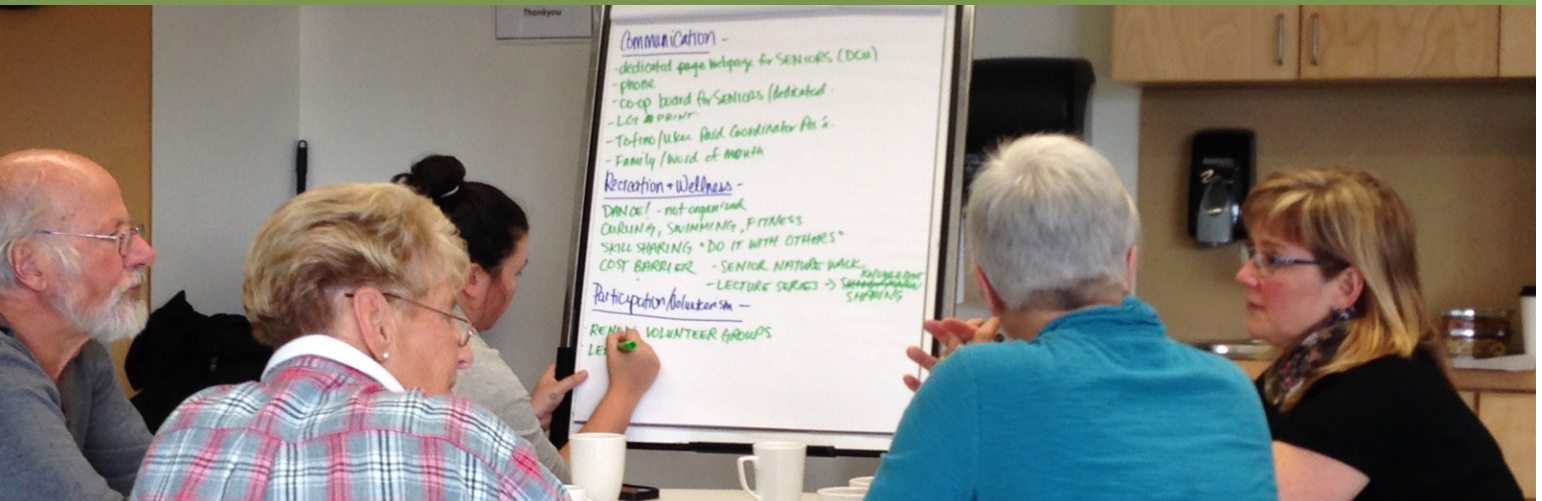 Thankyou
Communication -
- dedicated webpage for SENIORS (DOU)
- phone
- co-op board for SENIORS / dedicated.
- LG PRINT
- Tofino/Ukee Paid Coordinator Pos'n.
- Family / Word of mouth
Recreation + Wellness -
DANCE! - not organized
CURLING, SWIMMING, FITNESS
SKILL SHARING "DO IT WITH OTHERS"
COST BARRIER - SENIOR NATURE WALK
- LECTURE SERIES → KNOWLEDGE
SHARING
Participation/Volunteerism -
VOLUNTEER GROUPS